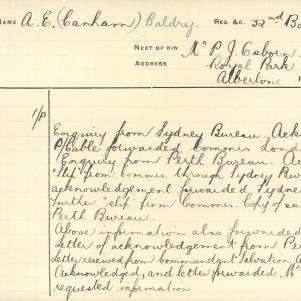 NAME A. E. (Canham) Baldry. REG. &C. 32nd Ba
NEXT OF KIN Mrs P. J. Osborn
ADDRESS Royal Park
Alberton.
1/P
Enquiry from Sydney Bureau. Ack
P/Cable forwarded Commrs Lond
Enquiry from Perth Bureau. Ac
"Slip" from Commrs. through Sydney Bur
acknowledgement forwarded, Sydney
Further "slip" from Commrs. Copy of sa
Perth Bureau.
Above information also forwarded
Letter of acknowledgement from Per
Letter received from Commandant Salvation A
Acknowledged, and letter forwarded Mrs
requested information